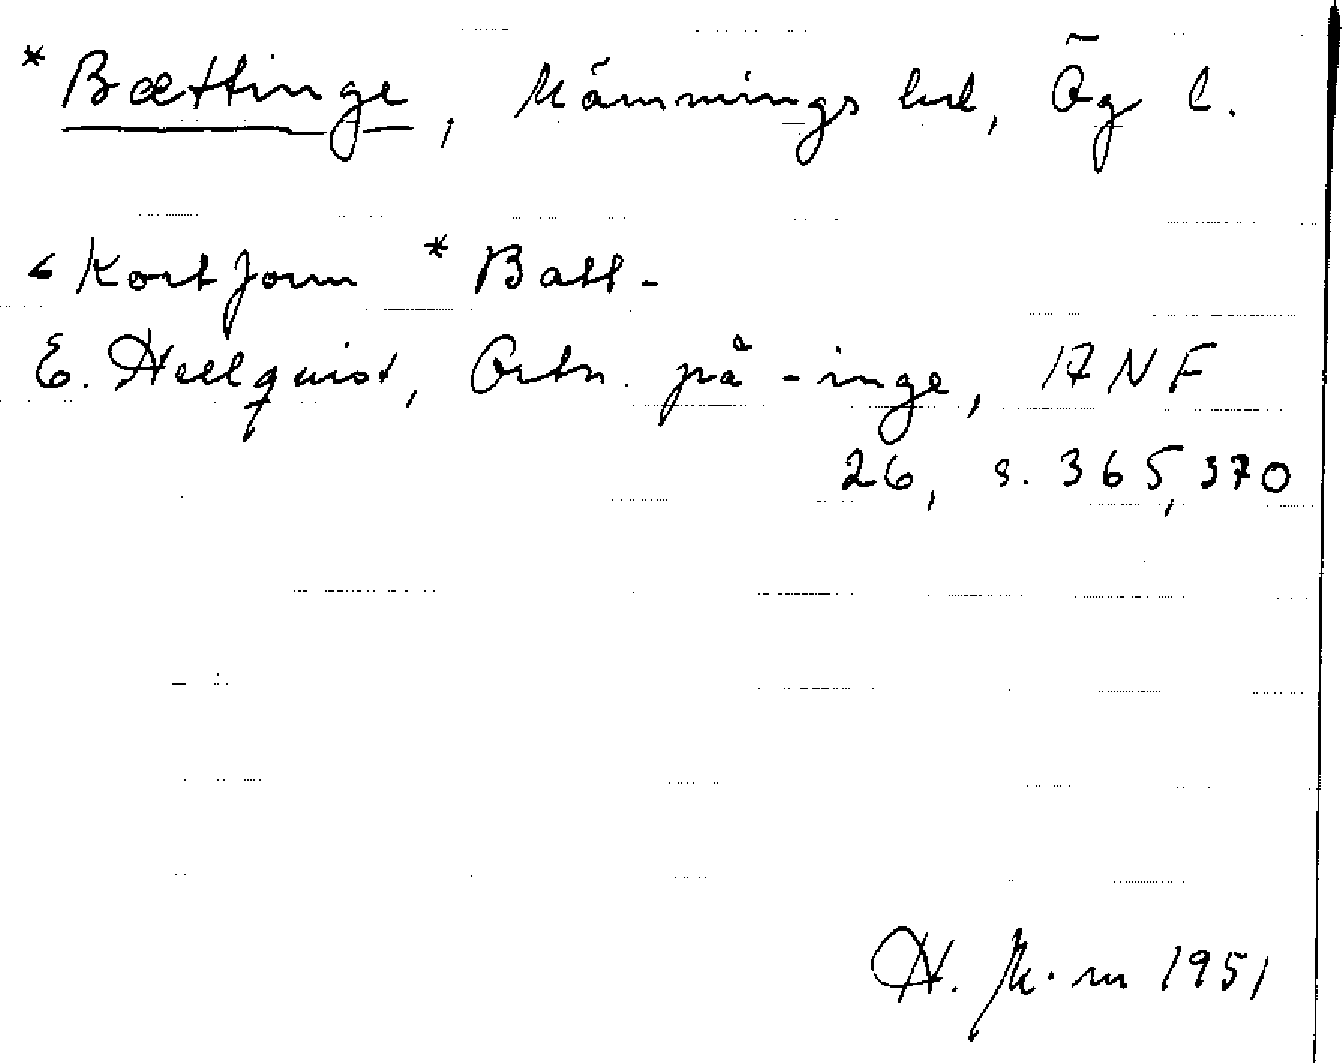 *Bættinge, Kämmings hd, Ög l.
< Kortform *Batt-
E. Hellquist, Ortn. på -inge, ANF
26, s. 365, 370
H. K·m 1951